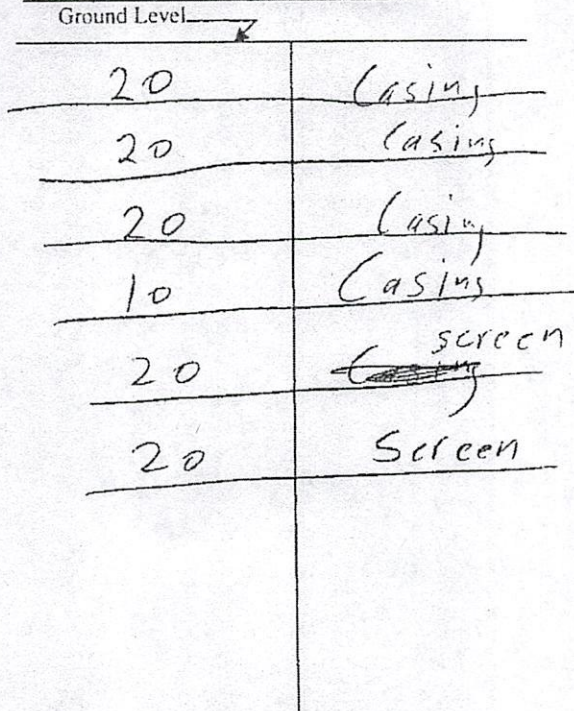 Ground Level
20 Casing
20 Casing
20 Casing
10 Casing
screen
20
20 Screen